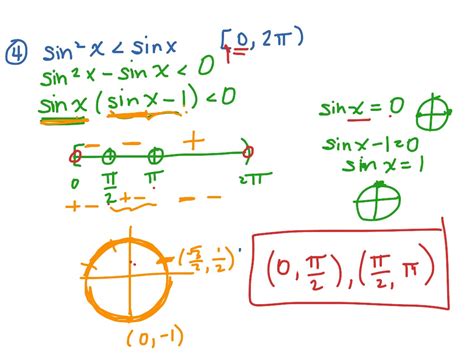 ④ sin²x < sinx [0, 2π)
sin²x − sinx < 0
sinx (sinx − 1) < 0
sinx = 0
sinx − 1 = 0
sinx = 1
− − +
0 π/2 π 2π
+ − + − − −
(√3/2, 1/2)
(0, −1)
(0, π/2), (π/2, π)